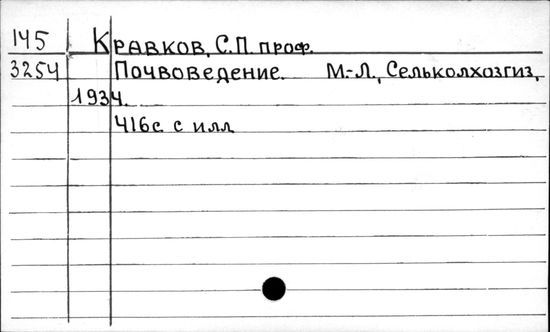 145 Кравков, С.П. проф.
3254 Почвоведение. М.-Л., Сельколхозгиз,
1934.
416с. с илл